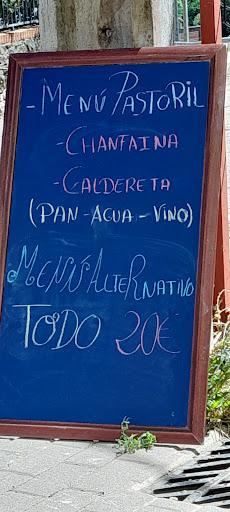 - MENÚ PASTORIL
- CHANFAINA
- CALDERETA
(PAN - AGUA - VINO)
MENÚ ALTERNATIVO
TODO 20€